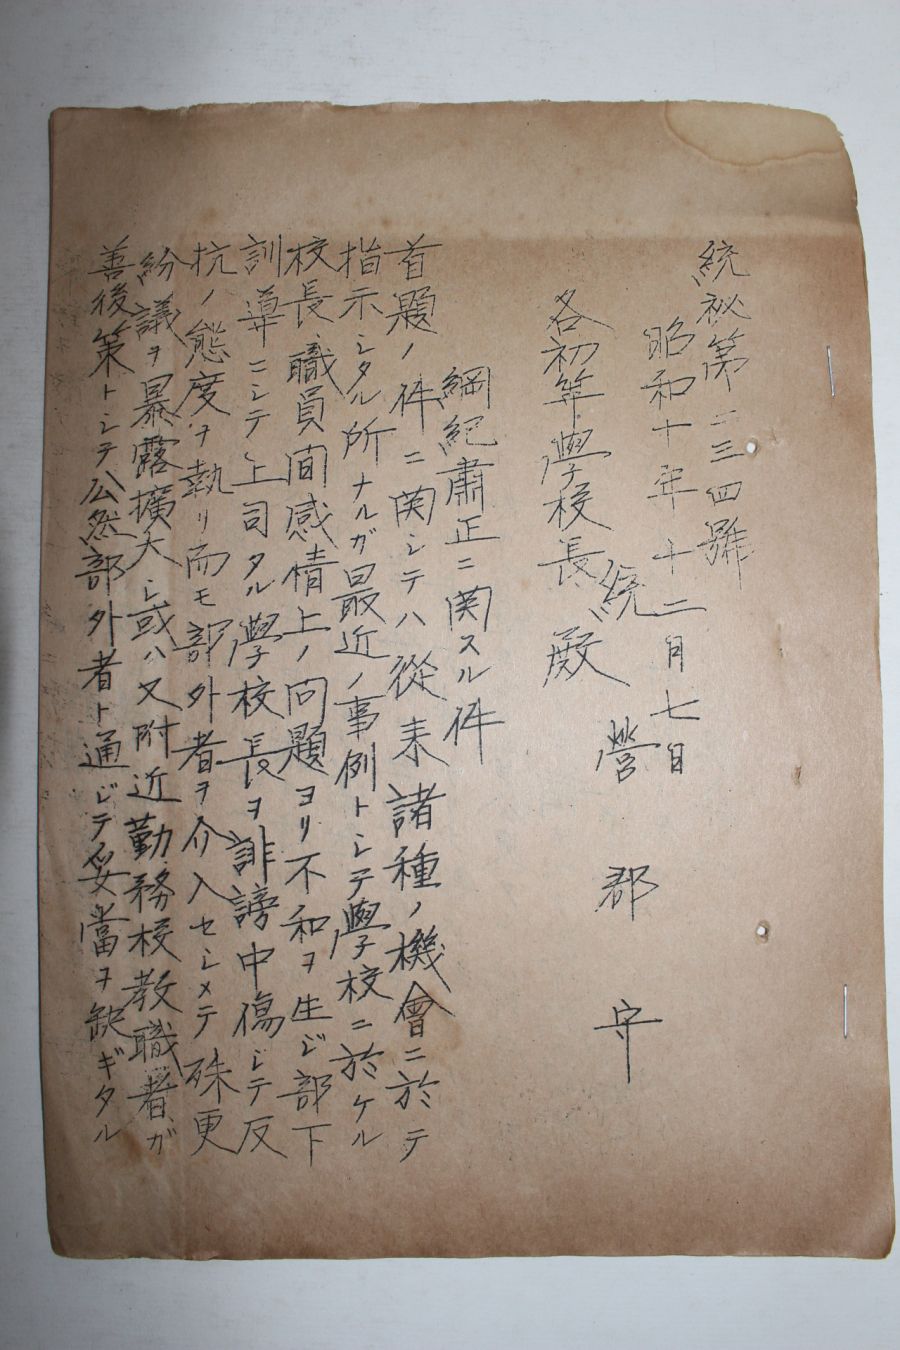 統祕第二三四號
昭和十年十二月七日
統營郡守
各初等學校長殿
綱紀肅正ニ関スル件
首題ノ件ニ関シテハ從来諸種ノ機會ニ於テ
指示シタル所ナルガ最近ノ事例トシテ學校ニ於ケル
校長、職員間感情上ノ問題ヨリ不和ヲ生ジ部下
訓導ニシテ上司タル學校長ヲ誹謗中傷シテ反
抗ノ態度ヲ執リ而モ部外者ヲ介入セシメテ殊更
紛議ヲ暴露擴大シ或ハ又附近勤務校教職者ガ
善後策トシテ公然部外者ト通ジテ妥當ヲ缺ギタル